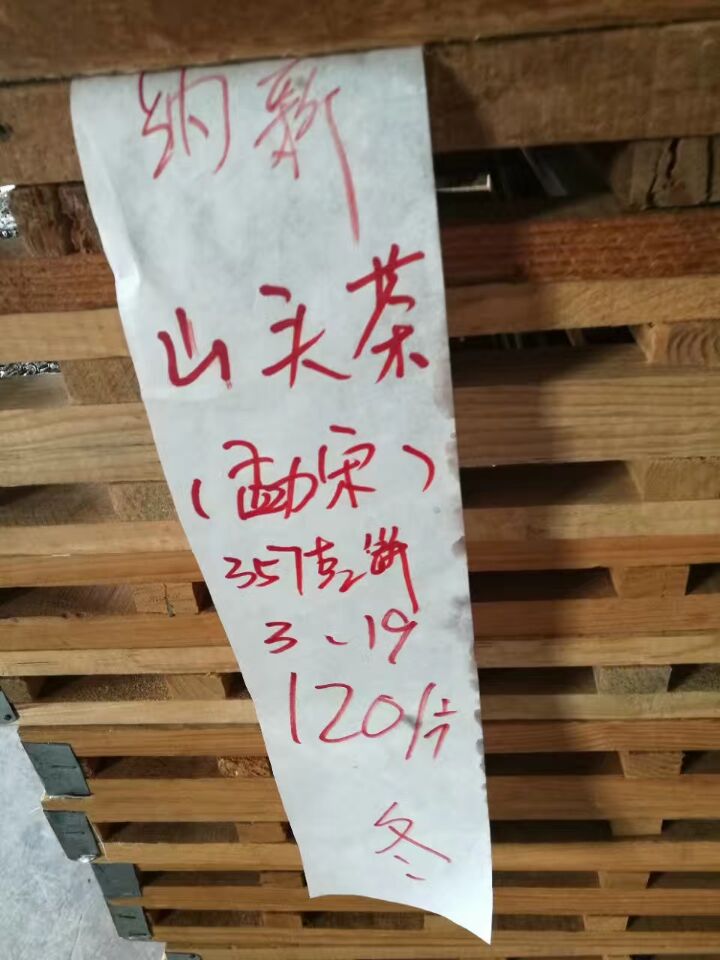 纳新
山头茶
(勐宋)
357克饼
3、19
120片
冬